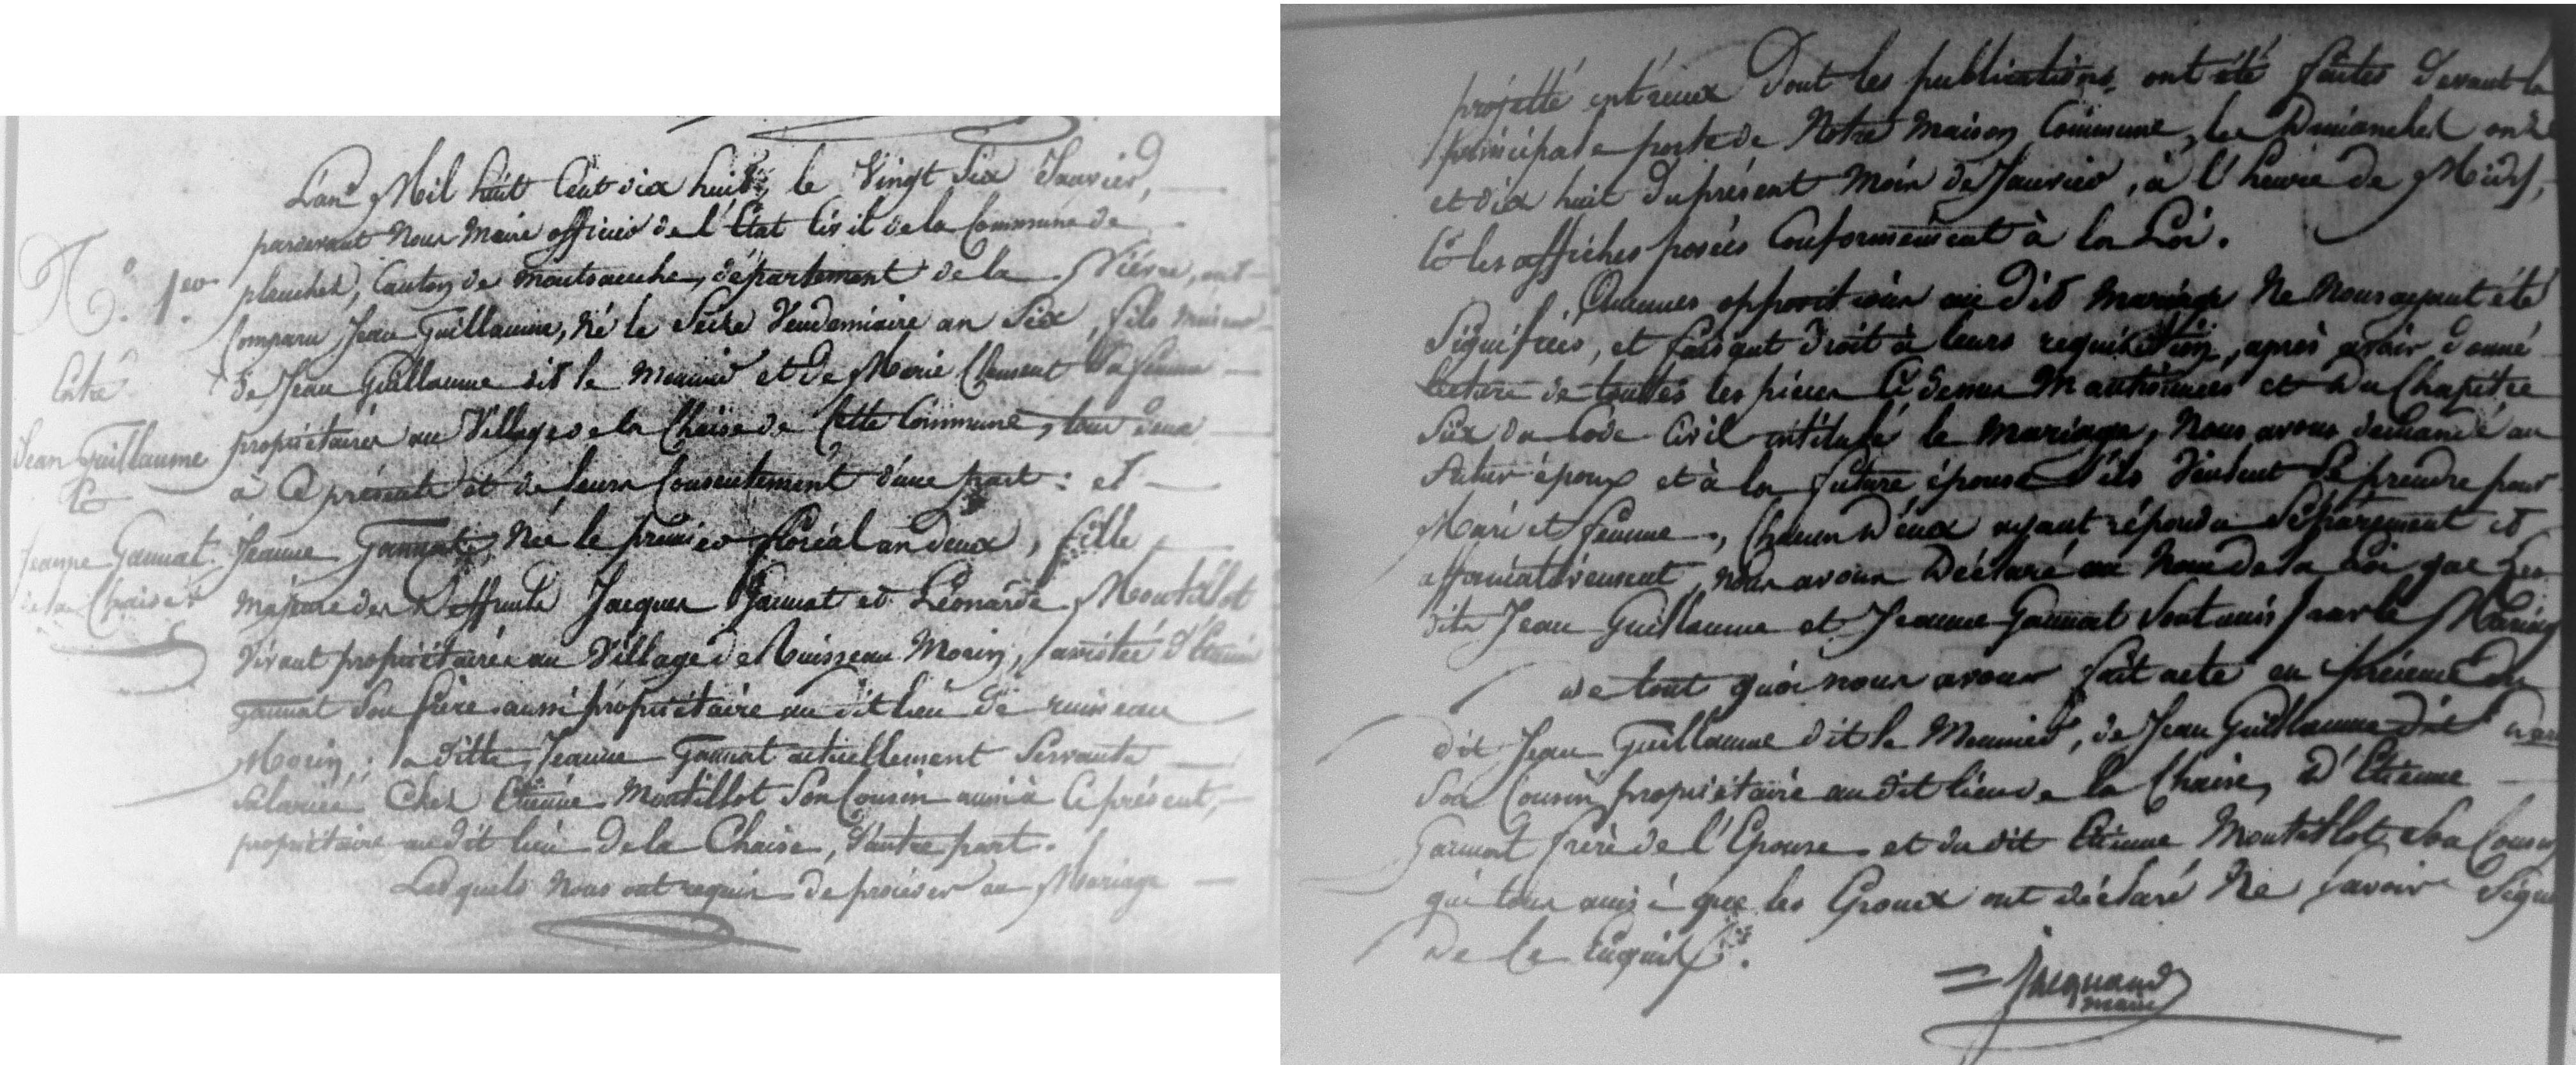 N.º 1.er
Entre
Jean Guillaume
Et
Jeanne Gaunat
de la Chaise
L'an Mil huit Cent dix huit, le Vingt Six Janvier,
pardevant Nous Maire officier de l'Etat Civil de la Commune de
planchez, Canton de montsauche, département de la Nièvre, ont
Comparu Jean Guillaume, Né le Seize Vendemiaire an Six, fils mineur
de Jean Guillaume dit le Meunier et de Marie Clement Sa femme
propriétaires au Village de la Chaise de Cette Commune, tous deux
à Ce présents et de leurs Consentement d'une part : et
Jeanne Gaunat, Née le premier floréal an deux, fille
majeure des deffunts Jacques Gaunat et Léonarde Montillot
Vivant propriétaires au Village de Ruisseau Morin, assistée d'Etienne
gaunat Son frère aussi propriétaire au dit lieu de ruisseau
Morin, la ditte Jeanne Gaunat actuellement Servante
Salariée Chez Etienne Montillot Son Cousin aussi à Ce présent,
propriétaire audit lieu de la Chaise, d'autre part.
Lesquels Nous ont requis de procéder au Mariage
projetté entr'eux dont les publications ont été faites devant la
principale porte de Notre Maison Commune, les Dimanches onze
et dix huit du présent Mois de Janvier, à l'heure de Midy,
Et les affiches posées Conformément à la Loi.
Aucunes opposition au dit mariage Ne Nous ayant été
Signifiées, et faisant droit à leurs requisition, après avoir donné
lecture de touttes les pièces Ci dessus Mantionnées et du Chapitre
Six du Code Civil intitulé le mariage, Nous avons demandé au
futur époux et à la future épouse S'ils Veulent Se prendre pour
Mari et femme, Chacun d'eux ayant répondu Séparément et
affirmativement, Nous avons Déclaré au Nom de la Loi que Les
dits Jean Guillaume et Jeanne Gaunat Sont unis par le Mariage
de tout quoi nous avons fait acte en présence du
dit Jean Guillaume dit le Meunier, de Jean Guillaume dit
Son Cousin propriétaire au dit lieu de la Chaise, d'Etienne
Gaunat frère de l'Epouse et du dit Etienne Montillot Son Cousin
qui tous ainsi que les Epoux ont déclaré Ne Savoir Signer
De Ce Enquis.
Jacquand
maire